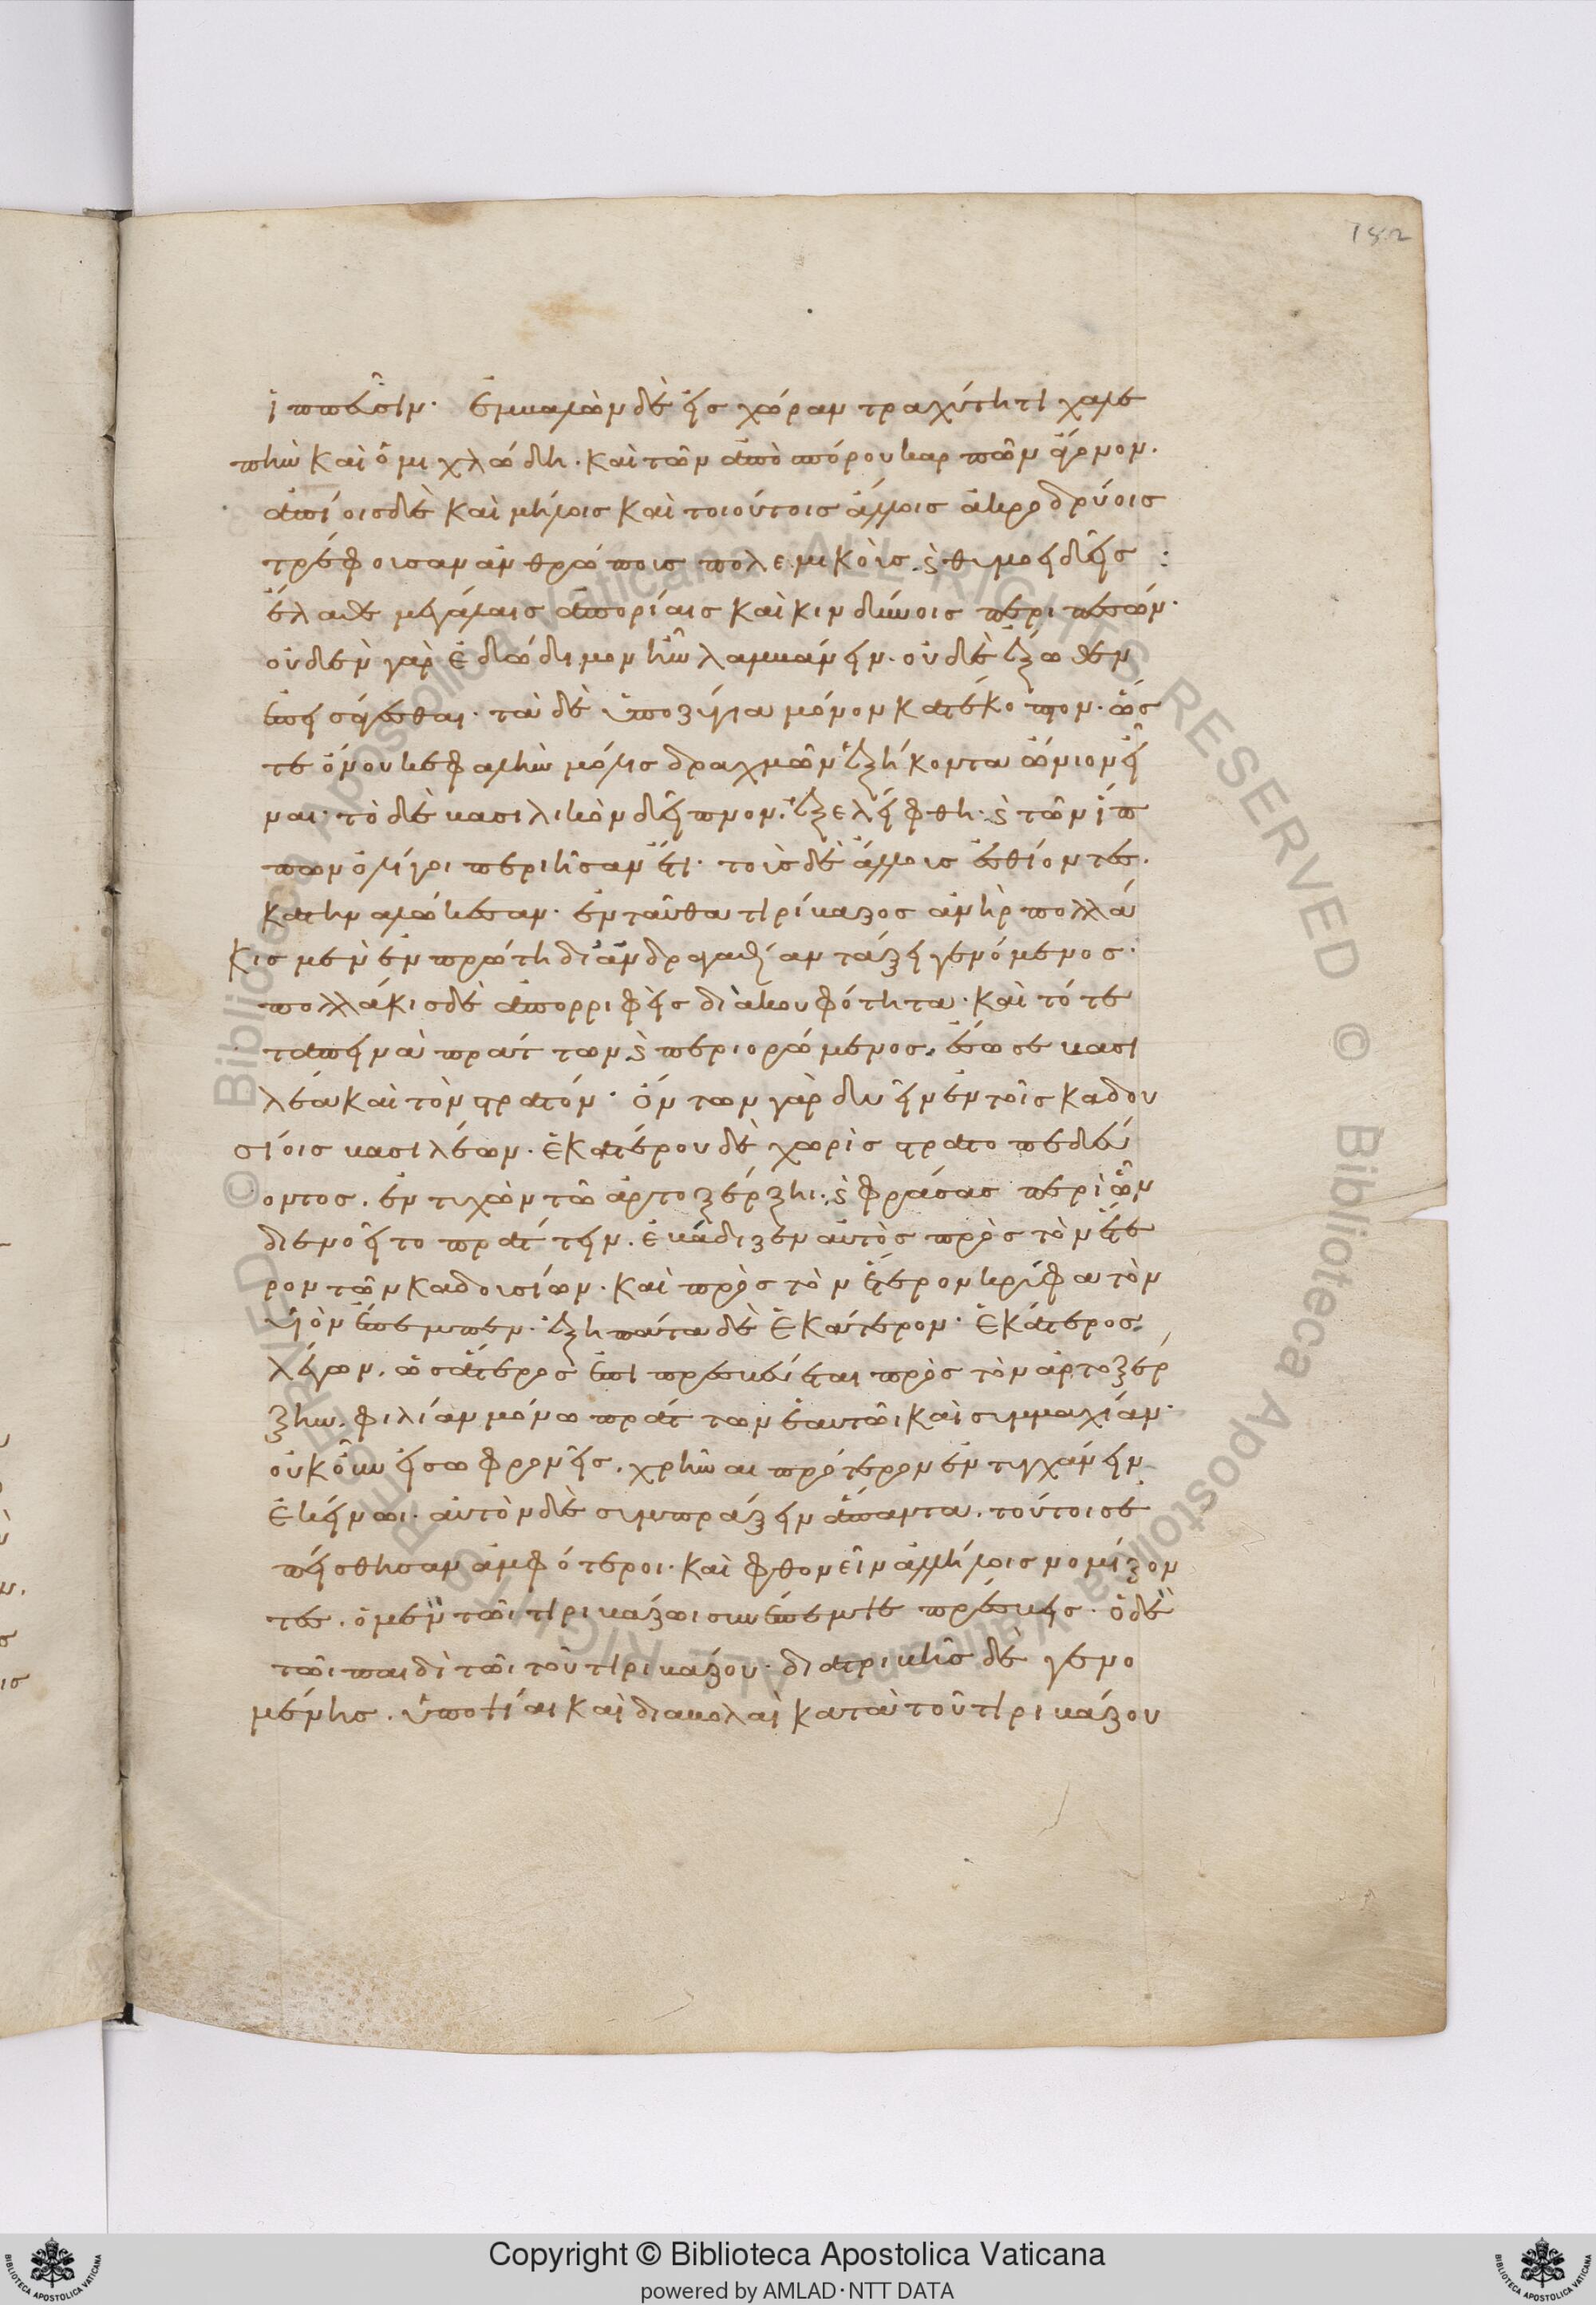 182
ἱππεῦσιν· ἐμβαλὼν δὲ εἰς χώραν τραχύτητι χαλε
πὴν καὶ ὁμιχλώδη· καὶ τῶν ἀπὸ σπόρου καρπῶν ἄγονον·
ἀπίοις δὲ καὶ μήλοις καὶ τοιούτοις ἄλλοις ἀκροδρύοις
τρέφουσαν ἀνθρώπους πολεμικοὺς καὶ θυμοειδεῖς:
ἔλαθε μεγάλαις ἀπορίαις καὶ κινδύνοις περιπεσών·
οὐδὲν γὰρ ἐδώδιμον ἦν λαμβάνειν· οὐδὲ ἔξωθεν
ἐπεισάγεσθαι· τὰ δὲ ὑποζύγια μόνον κατέκοπτον· ὥσ
τε ὄνου κεφαλὴν μόλις δραχμῶν ἑξήκοντα ὤνιον εἶ
ναι· τὸ δὲ βασιλικὸν δεῖπνον· ἐξελείφθη· καὶ τῶν ἵπ
πων ὀλίγοι περιῆσαν ἔτι· τοὺς δὲ ἄλλους ἐσθίοντες·
κατηναλώκεσαν· ἐνταῦθα τιρίβαζος ἀνὴρ πολλά
κις μὲν ἐν πρώτῃ δι' ἀνδραγαθίαν τάξει γενόμενος·
πολλάκις δὲ ἀπορριφεὶς διὰ κουφότητα· καὶ τότε
ταπεινὰ πράττων καὶ περιορώμενος· ἔσωσε βασι
λέα καὶ τὸν στρατόν· ὄντων γὰρ δυεῖν ἐν τοῖς καδου
σίοις βασιλέων· ἑκατέρου δὲ χωρὶς στρατοπεδεύ
οντος· ἐντυχὼν τῶ ἀρτοξέρξηι· καὶ φράσας περὶ ὧν
διενοεῖτο πράττειν· ἐβάδιζεν αὐτὸς πρὸς τὸν ἕτε
ρον τῶν καδουσίων· καὶ πρὸς τὸν ἕτερον κρύφα τὸν
υἱὸν ἔπεμπεν· ἐξηπάτα δὲ ἑκάτερον· ἑκάτερος·
λέγων· ὡς ἅτερος ἐπιπρεσβεύεται πρὸς τὸν ἀρτοξέρ
ξην· φιλίαν μόνω πράττων ἑαυτῶι καὶ συμμαχίαν·
οὐκοῦν εἰ σωφρονεῖς· χρῆναι πρότερον ἐντυγχάνειν
ἐκείνωι· αὐτὸν δὲ συμπράξειν ἅπαντα· τούτοις ἐ
πείσθησαν ἀμφότεροι· καὶ φθονεῖν ἀλλήλοις νομίζον
τες· ὁ μὲν τῶι τιριβάζωι συνέπεμψε πρέσβεις· ὁ δὲ
τῶι παιδὶ τῶι τοῦ τιριβάζου· διατριβῆς δὲ γενο
μένης· ὑποψίαι καὶ διαβολαὶ κατὰ τοῦ τιριβάζου
Copyright © Biblioteca Apostolica Vaticana
powered by AMLAD·NTT DATA